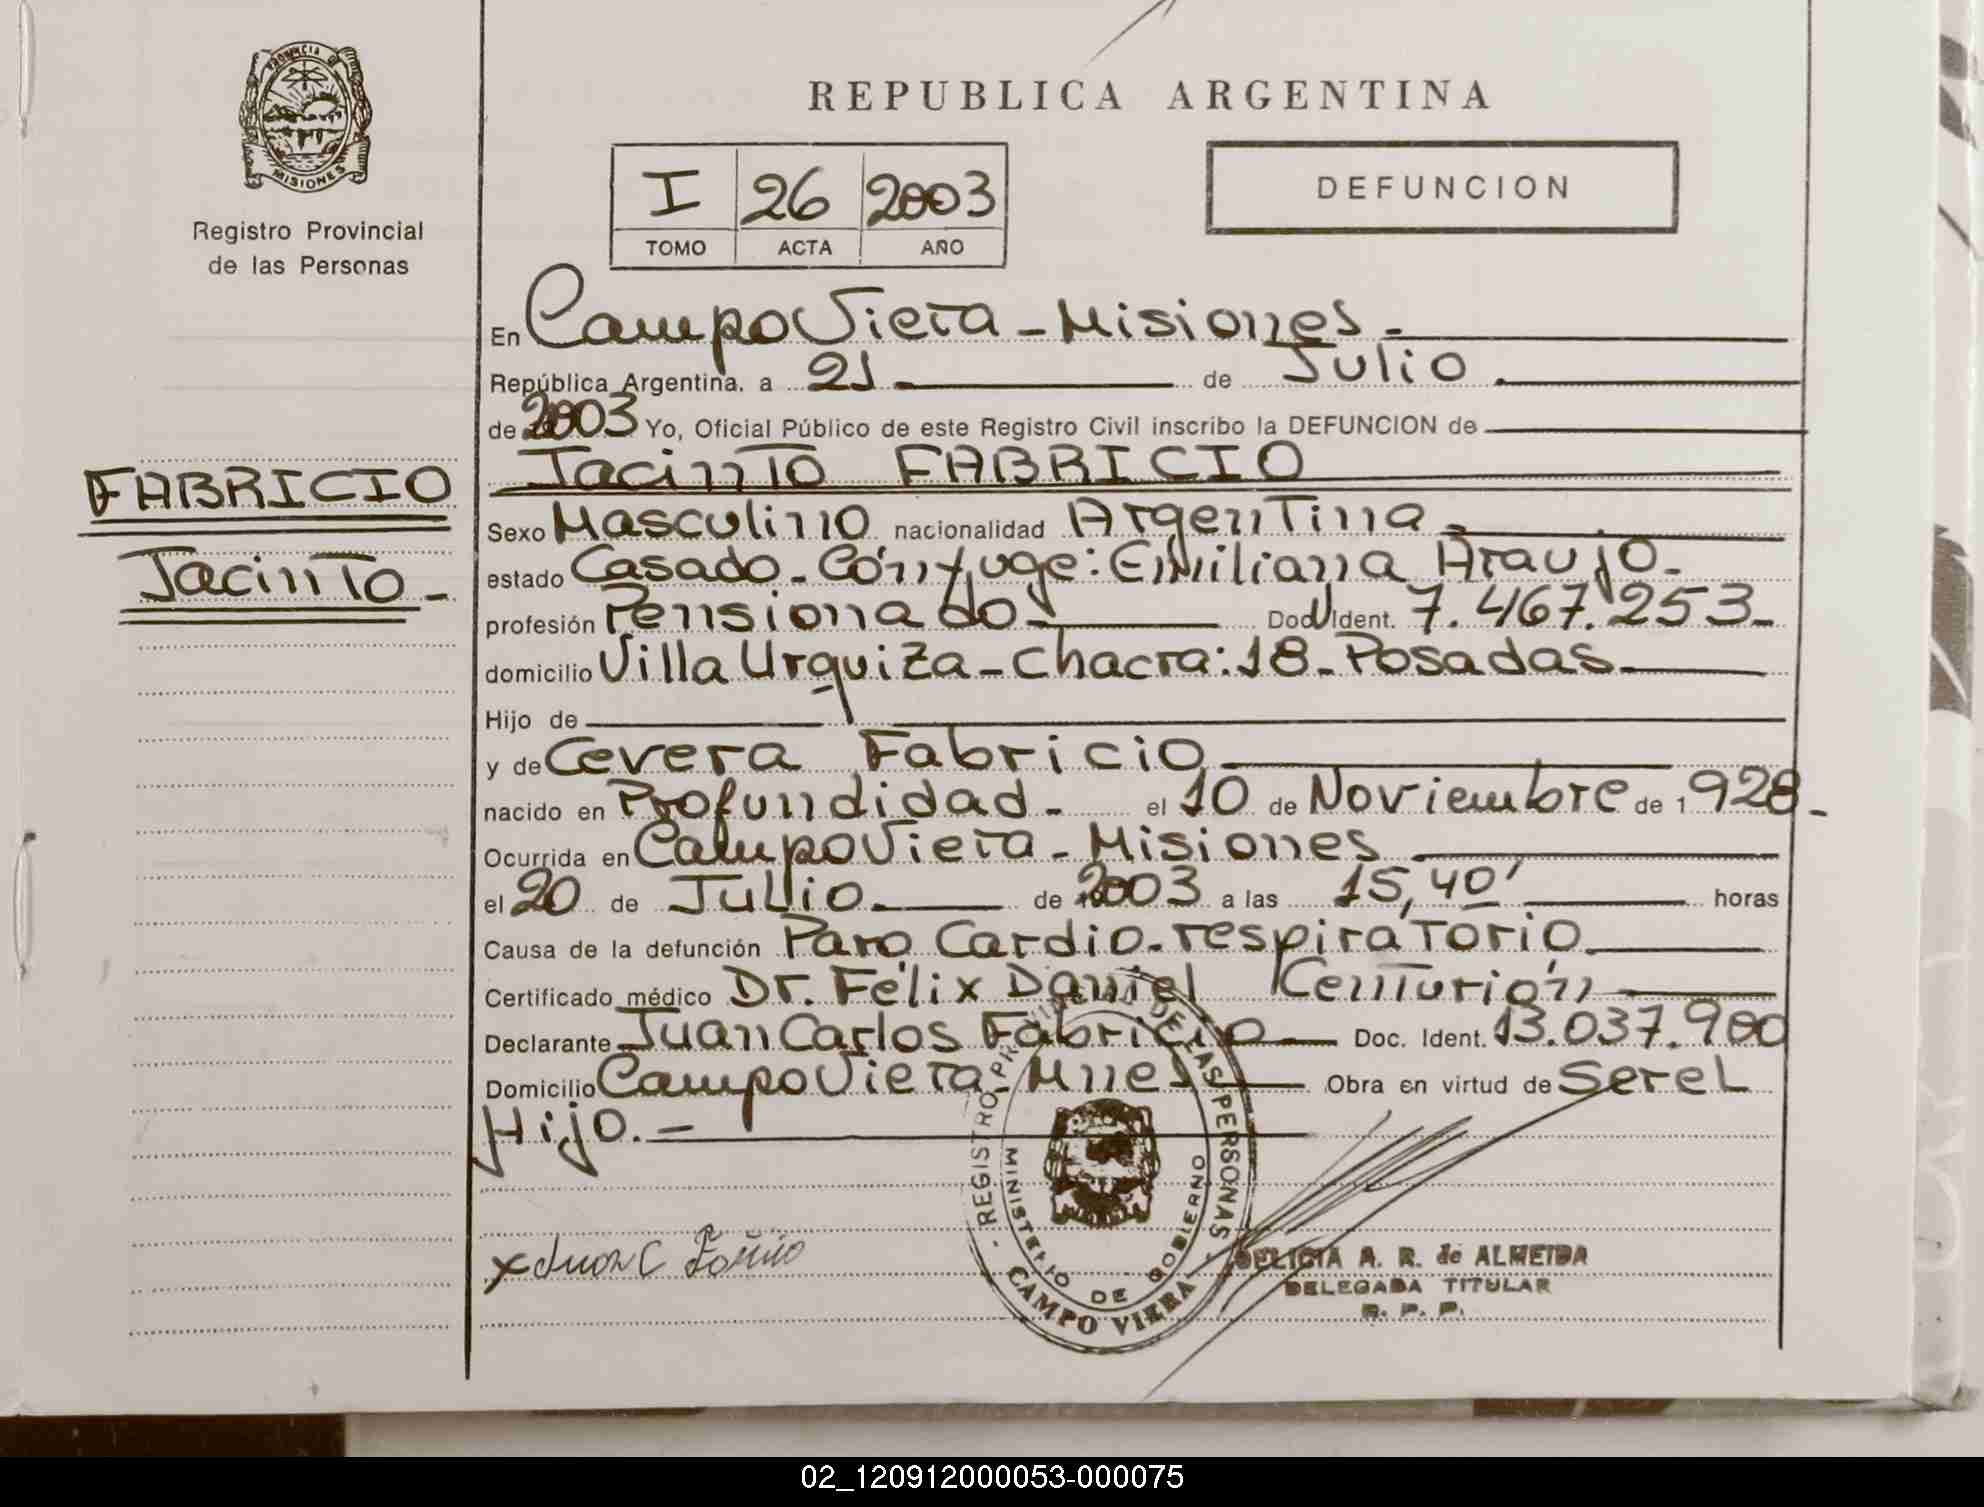 PROVINCIA DE
MISIONES
Registro Provincial
de las Personas
REPUBLICA ARGENTINA
I 26 2003
TOMO ACTA AÑO
DEFUNCION
En Campo Viera - Misiones -
República Argentina, a 21 de Julio
de 2003 Yo, Oficial Público de este Registro Civil inscribo la DEFUNCION de
FABRICIO
Jacinto -
Jacinto FABRICIO
Sexo Masculino nacionalidad Argentina -
estado Casado - Cónyuge: Emiliana Araujo -
profesión Pensionado - Doc. Ident. 7.467.253 -
domicilio Villa Urquiza - Chacra: 18 - Posadas -
Hijo de
y de Cevera Fabricio
nacido en Profundidad - el 10 de Noviembre de 1928 -
Ocurrida en Campo Viera - Misiones
el 20 de Julio de 2003 a las 15,40' horas
Causa de la defunción Paro Cardio-respiratorio
Certificado médico Dr. Félix Daniel Centurión
Declarante Juan Carlos Fabricio Doc. Ident. 13.037.900
Domicilio Campo Viera - Mnes Obra en virtud de Ser el
Hijo. -
x Juan C
- REGISTRO PROVINCIAL DE LAS PERSONAS -
MINISTERIO DE GOBIERNO
CAMPO VIERA
DELICIA A. R. de ALMEIDA
DELEGADA TITULAR
R. P. P.
02_120912000053-000075